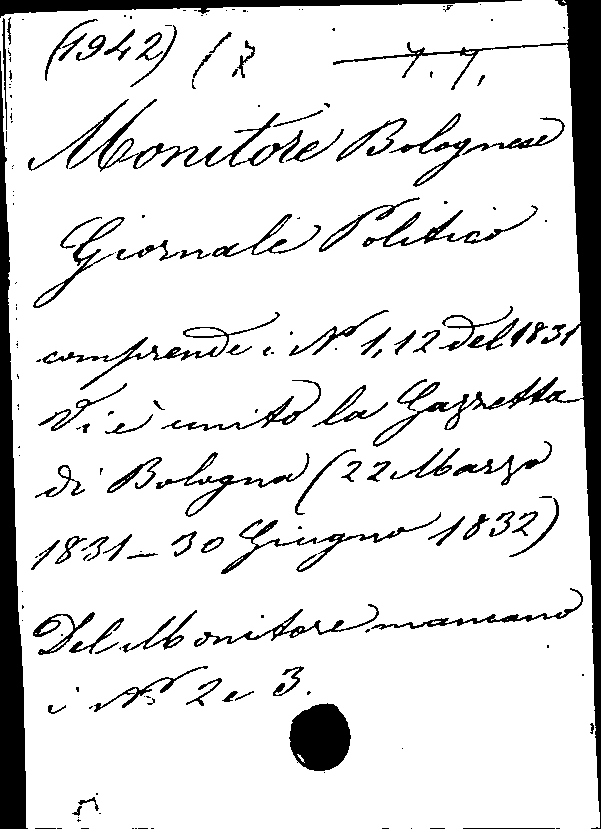 (1942)
Monitore Bolognese
Giornale Politico
comprende i Nº 1, 12 del 1831
Vi è unito la Gazzetta
di Bologna (22 Marzo
1831 - 30 Giugno 1832)
Del Monitore mancano
i Nº 2 e 3.